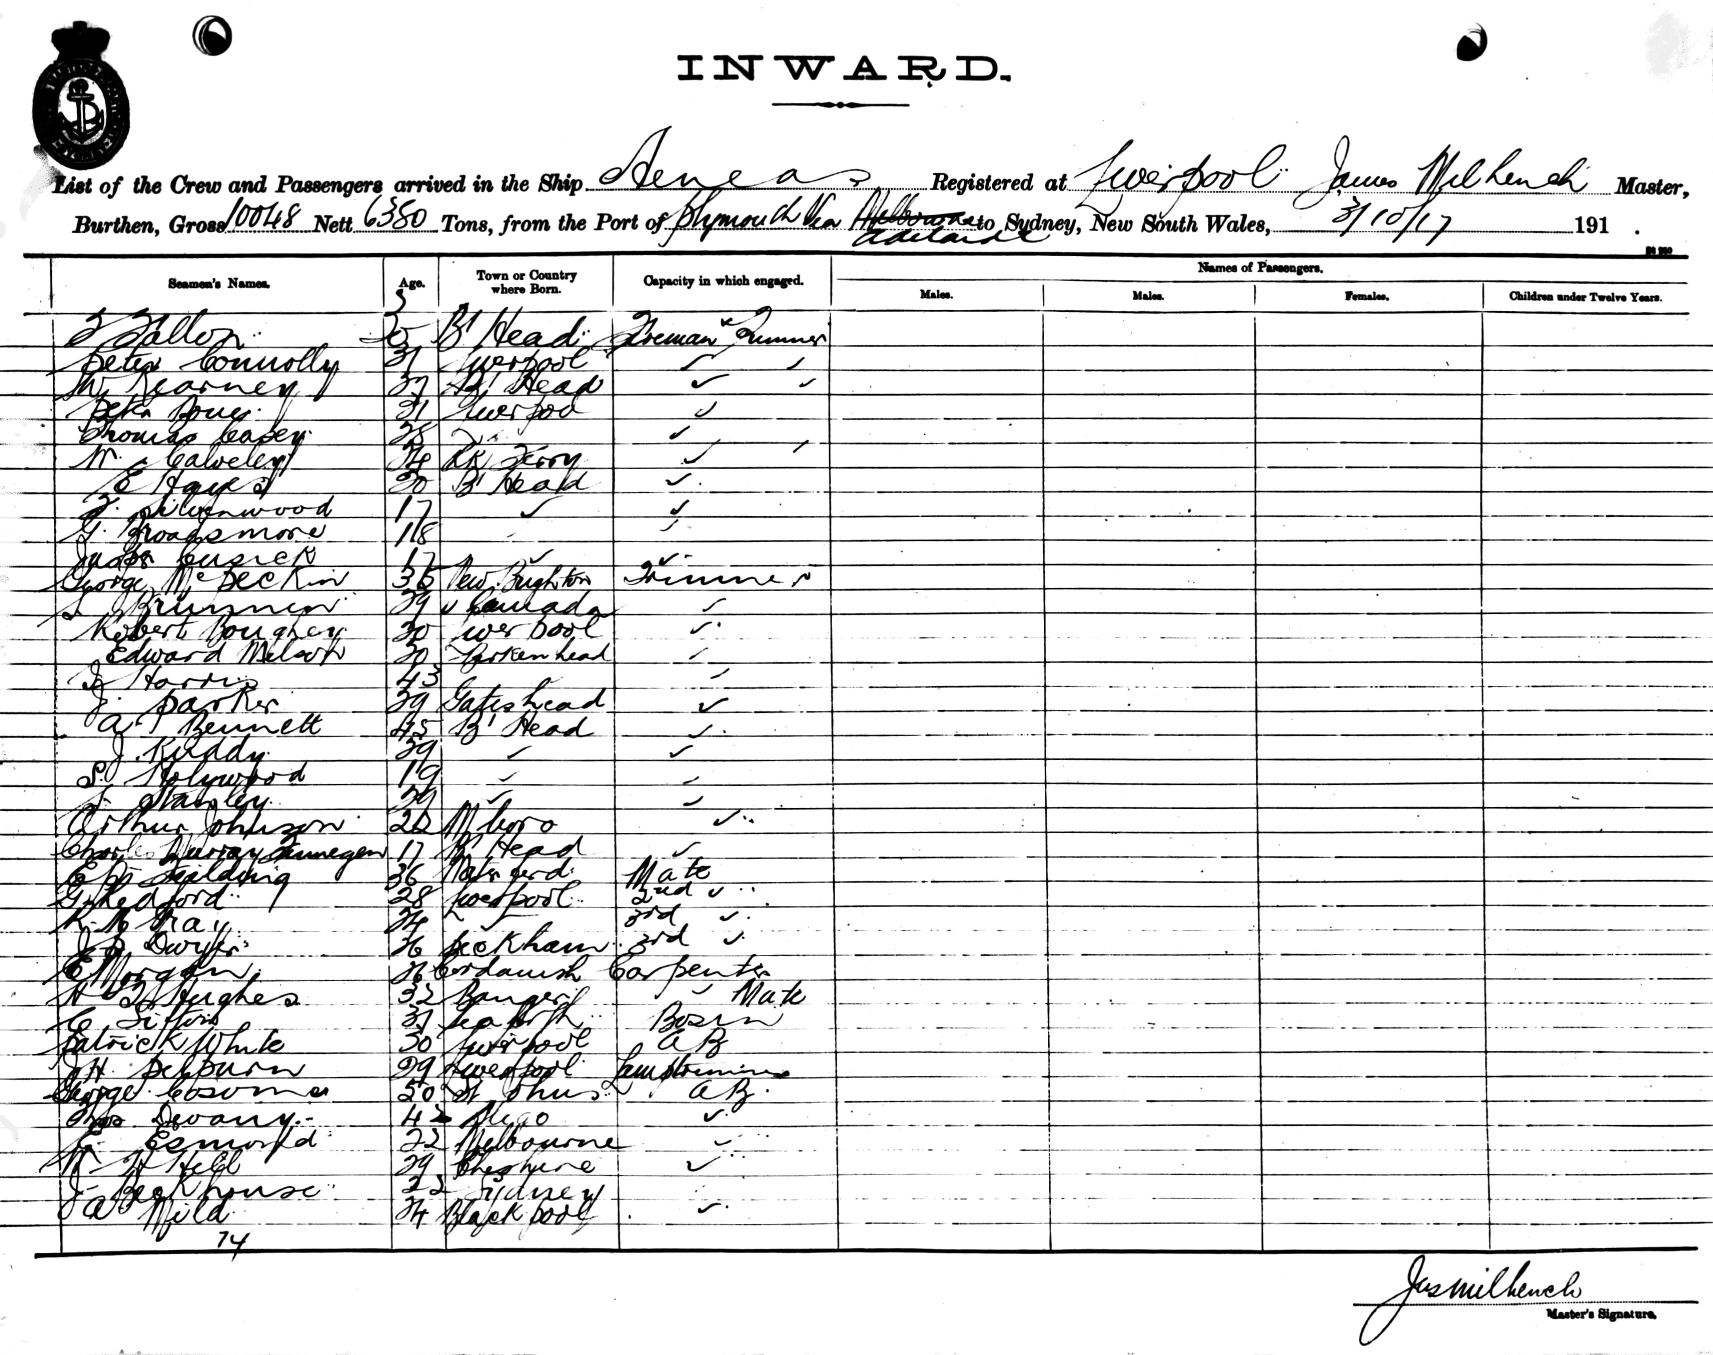 INWARD.
List of the Crew and Passengers arrived in the Ship Aeneas Registered at Liverpool James Milhench Master,
Burthen, Gross 10048 Nett 6380 Tons, from the Port of Plymouth Via Melbourne Adelaide to Sydney, New South Wales, 3/10/17 191 .
Seamen's Names. Age. Town or Country where Born. Capacity in which engaged. Names of Passengers.
Males. Males. Females. Children under Twelve Years.
B' Head Fireman & Trimmer
Peter Connolly 31 Liverpool ✓
W. Kearney 37 B' Head ✓
Peter 31 Liverpool ✓
Thomas Casey 28 ✓
W. Calveley 34 Rk Ferry ✓
E Hayes 30 B' Head ✓
Silvenwood 17 ✓ ✓
G. Broadsmore 18 ✓
Cusick 17 ✓ ✓
George McPeckin 35 New Brighton Trimmer
39 Canada ✓
Robert Boughey 30 Liverpool ✓
Edward 30 Birkenhead ✓
J Harris 43 ✓
J. Parker 39 Gateshead ✓
A Bennett 45 B' Head ✓
J. Ruddy 39 ✓ ✓
S. Holywood 19 ✓ ✓
Stanley 39 ✓ ✓
Arthur Johnson M'boro ✓
Charles Murray Finnegan 17 B' Head ✓
Spalding 36 Mate
G. Ledford 28 Liverpool 2nd ✓
Gray 34 ✓ 3rd ✓
Dwyer 36 Peckham 3rd ✓
E Morgan 36 Carpenter
Hughes 32 Bangor ✓ Mate
31 Seaforth Bosun
Patrick White 30 Liverpool AB
J H Depburn 29 Liverpool Lamptrimmer
George 50 St Johns AB
Thos Devany 42 Sligo ✓
Esmond 22 Melbourne ✓
W H Hill 29 Cheshire ✓
J. Beckhouse 22 Sydney
A Wild 34 Blackpool ✓
74
Jas Milhench
Master's Signature.